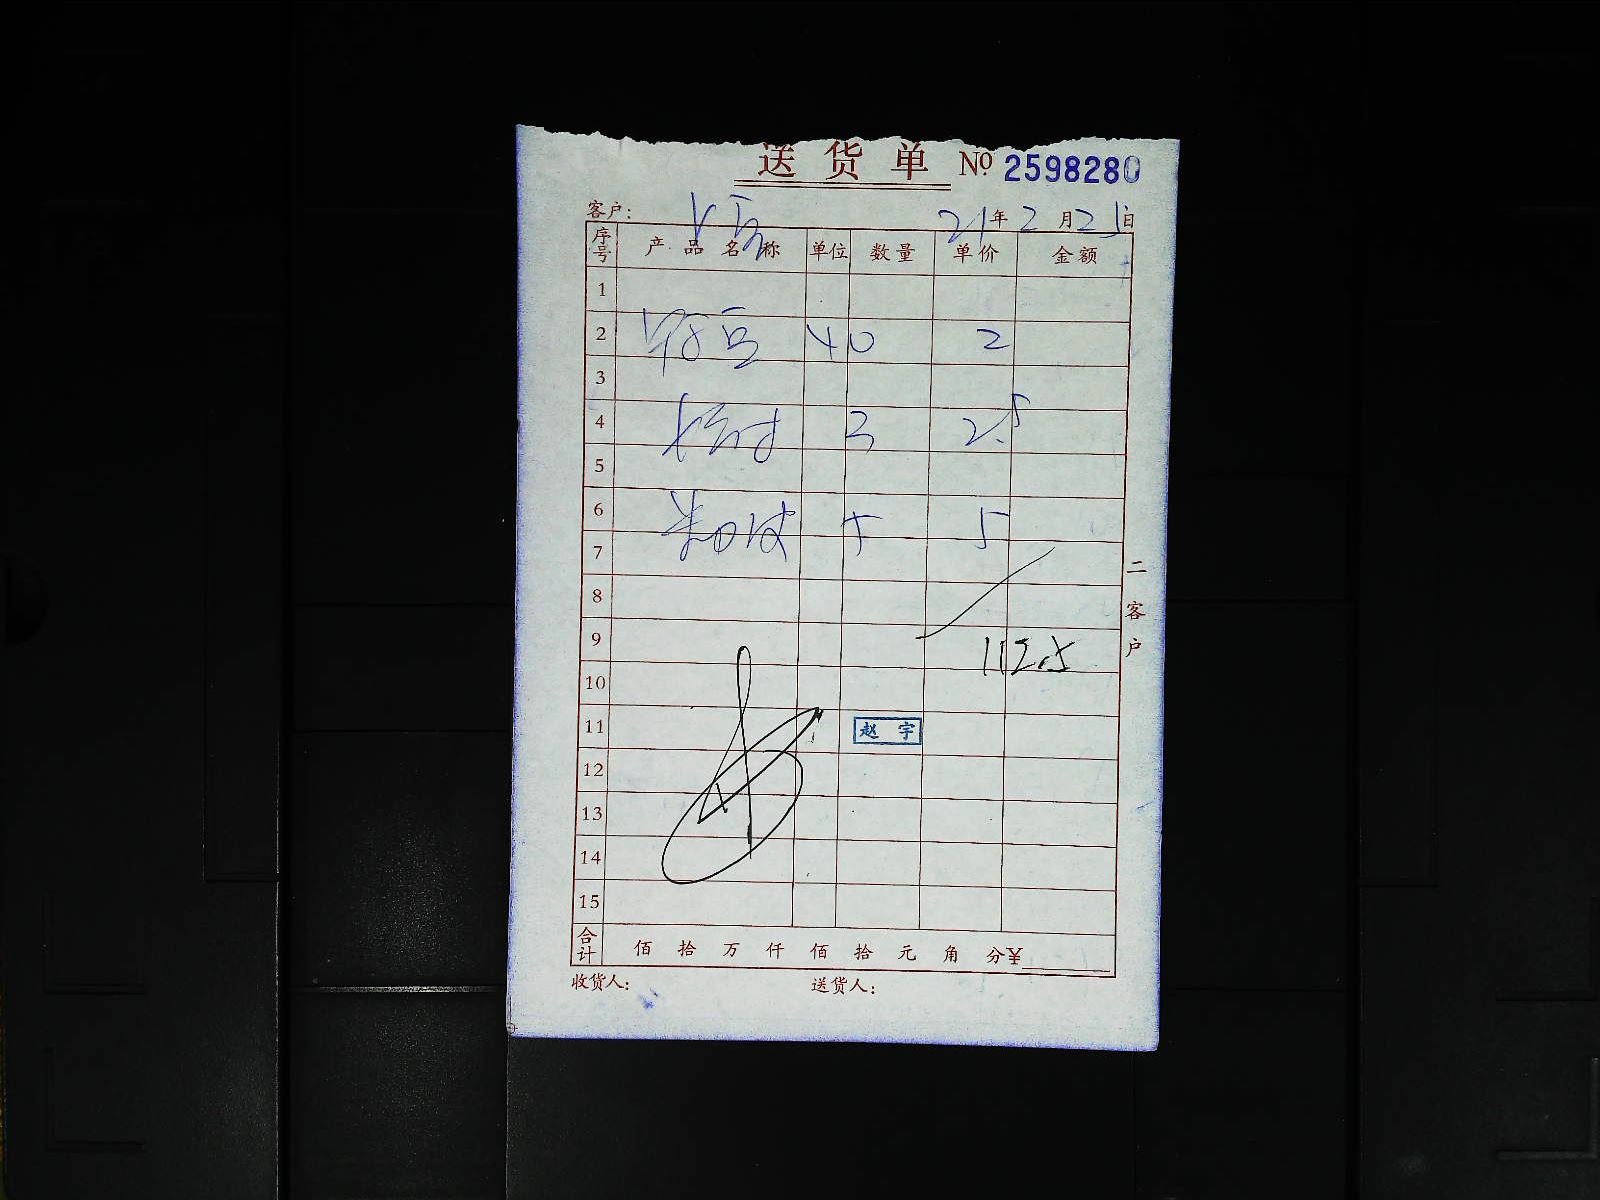 送货单 No 2598280
客户: 21年2月25日
序号 产品名称 单位 数量 单价 金额
1
2 豆 40 2
3
4 3 2.5
5
6 5 5
7
8
9 112.5
10
11 赵宇
12
13
14
15
合计 佰 拾 万 仟 佰 拾 元 角 分¥
收货人: 送货人:
二客户